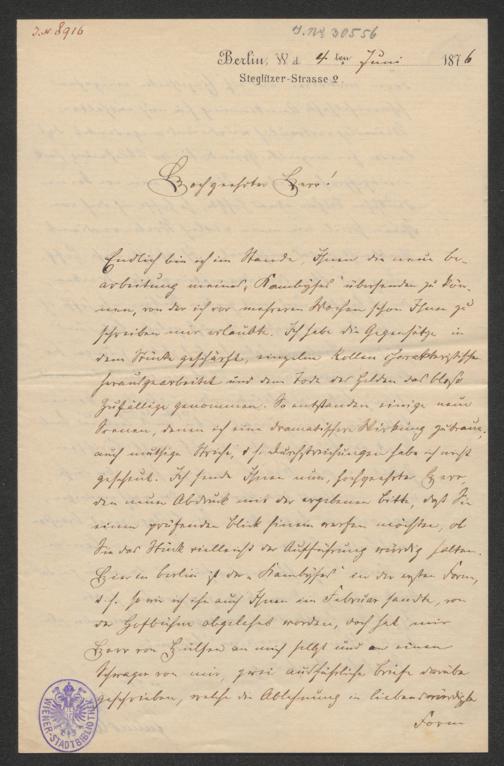 J.N. 8916
J.N. 30556
Berlin, W. d. 4ten Juni 1876
Steglitzer-Strasse 2
Hochgeehrter Herr!
Endlich bin ich im Stande Ihnen die neue Be-
arbeitung meines „Kambyses“ übersenden zu kön-
nen, von der ich vor mehreren Wochen schon Ihnen zu
schreiben mir erlaubte. Ich habe die Gegensätze in
dem Stücke geschärft, einzelne Rollen charakteristischer
herausgearbeitet und dem Tode des Helden das bloß
Zufällige genommen. So entstanden einige neue
Scenen, denen ich eine dramatischere Wirkung zutraue,
auch muthige Striche, d. h. Durchstreichungen habe ich nicht
gescheut. Ich sende Ihnen nun, hochgeehrter Herr,
den neuen Abdruck mit der ergebenen Bitte, daß Sie
einen prüfenden Blick hinein werfen möchten, ob
Sie das Stück vielleicht der Aufführung würdig halten.
Hier in Berlin ist der „Kambyses“ in der ersten Form,
d. h. so wie ich ihn auch Ihnen im Februar sandte, von
der Hofbühne abgelehnt worden, doch hat mir
Herr von Hülsen an mich selbst und an einen
Schwager von mir, zwei ausführliche Briefe darüber
geschrieben, welche die Ablehnung in liebenswürdigster
Form
WIENER-STADTBIBLIOTHEK